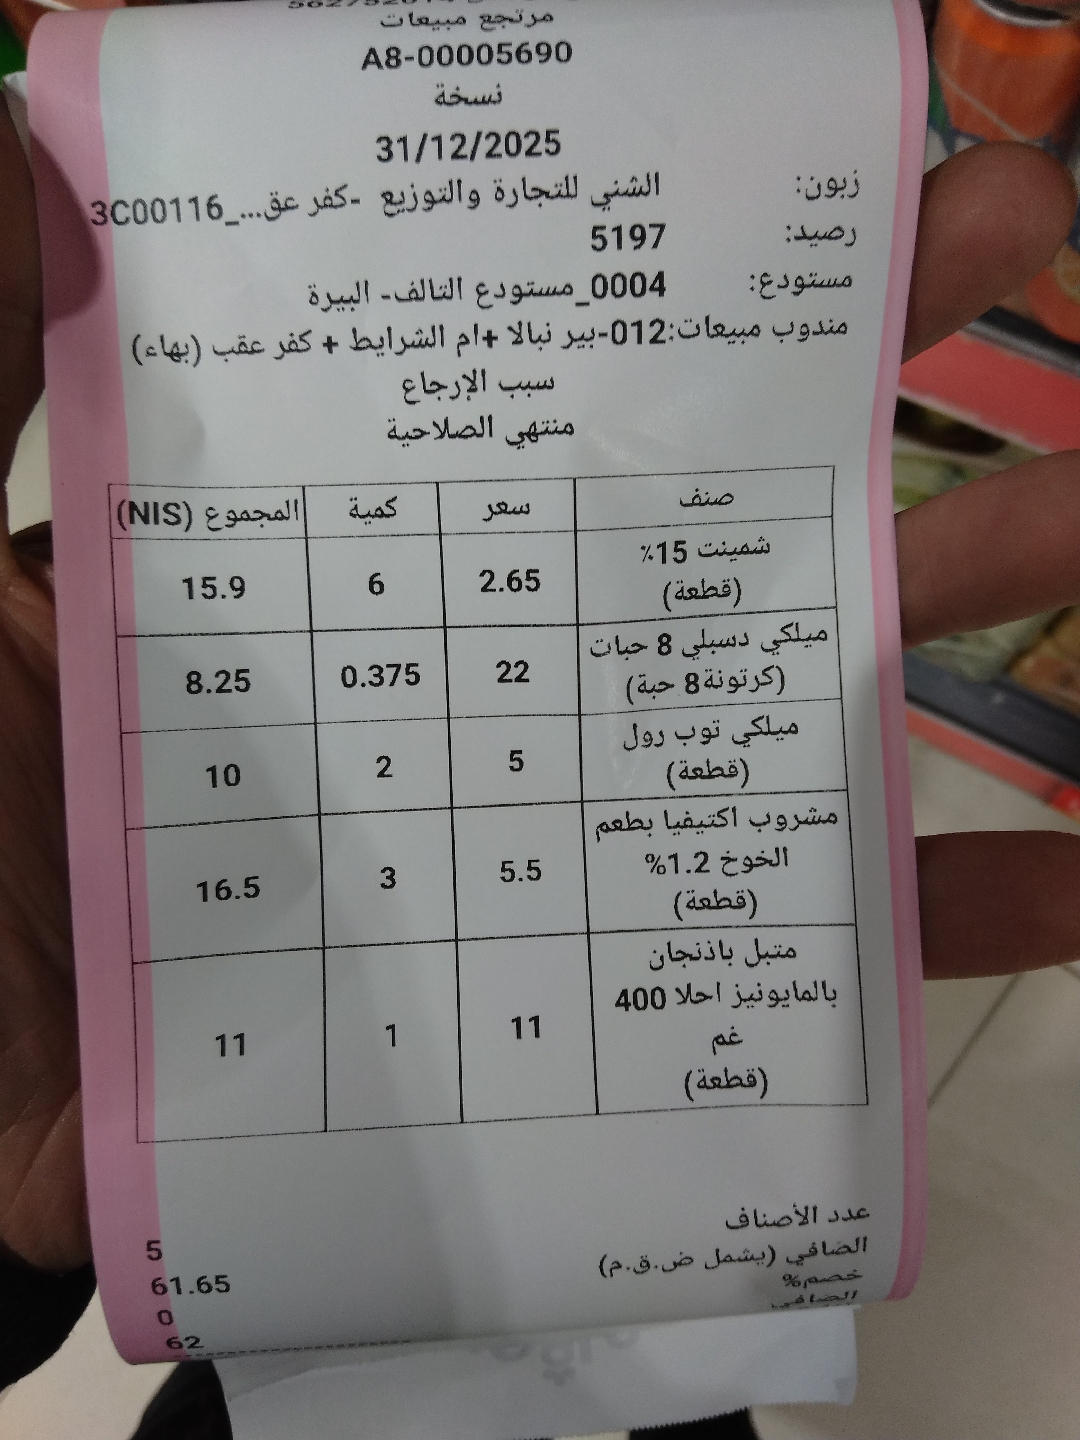 مرتجع مبيعات
A8-00005690
نسخة
31/12/2025
زبون: الشني للتجارة والتوزيع -كفر عق..._3C00116
رصيد: 5197
مستودع: 0004_مستودع التالف- البيرة
مندوب مبيعات:012-بير نبالا +ام الشرايط + كفر عقب (بهاء)
سبب الإرجاع
منتهي الصلاحية
صنف سعر كمية المجموع (NIS)
شمينت 15٪
(قطعة) 2.65 6 15.9
ميلكي دسبلي 8 حبات
(كرتونة8 حبة) 22 0.375 8.25
ميلكي توب رول
(قطعة) 5 2 10
مشروب اكتيفيا بطعم
الخوخ 1.2%
(قطعة) 5.5 3 16.5
متبل باذنجان
بالمايونيز احلا 400
غم
(قطعة) 11 1 11
عدد الأصناف 5
الصافي (يشمل ض.ق.م) 61.65
خصم% 0
الصافي 62